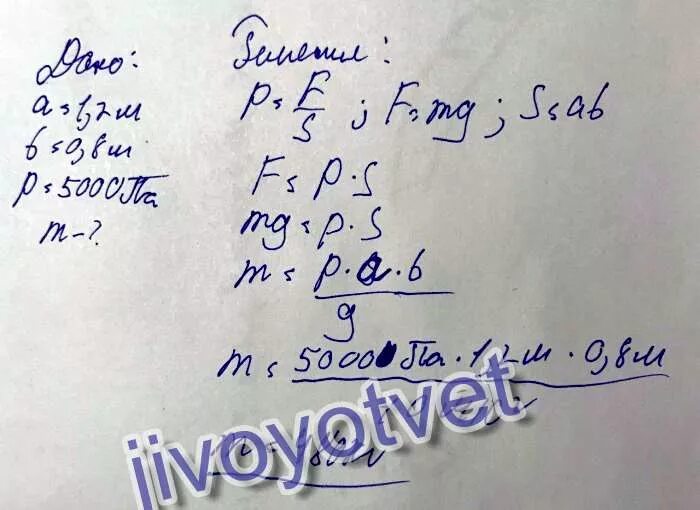 Дано:
a = 1,2 м
b = 0,8 м
p = 5000 Па
m - ?
Решение:
p = F/S ; F = mg ; S = ab
F = p · S
mg = p · S
m = p · a · b
g
m = 5000 Па · 1,2 м · 0,8 м
jivoyotvet